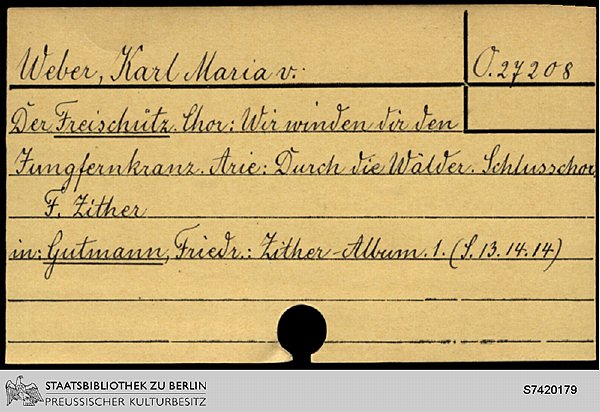 Weber, Karl Maria v.
O. 27208
Der Freischütz. Chor: Wir winden dir den
Jungfernkranz. Arie: Durch die Wälder. Schlusschor.
F. Zither
in: Gutmann, Friedr.: Zither-Album. 1. (S. 13. 14. 14)
STAATSBIBLIOTHEK ZU BERLIN
PREUSSISCHER KULTURBESITZ
S7420179